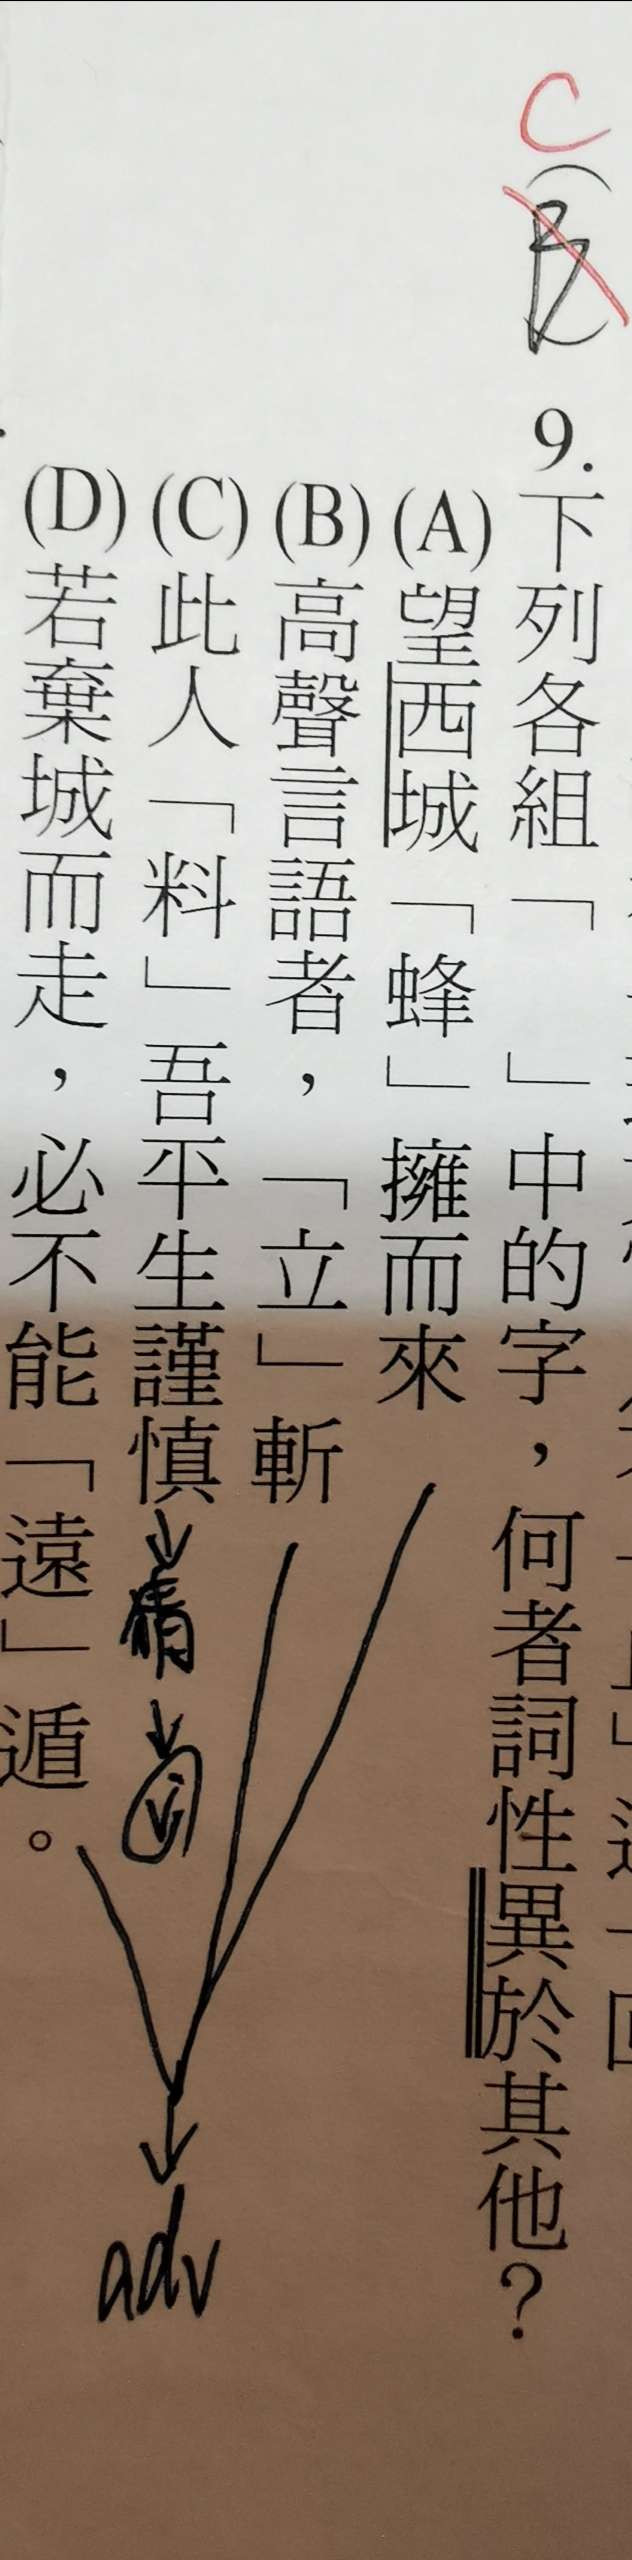 C
(B)
9.下列各組「　」中的字，何者詞性異於其他？
(A)望西城「蜂」擁而來
(B)高聲言語者，「立」斬
(C)此人「料」吾平生謹慎
↓猜
↓
(D)若棄城而走，必不能「遠」遁。
adv